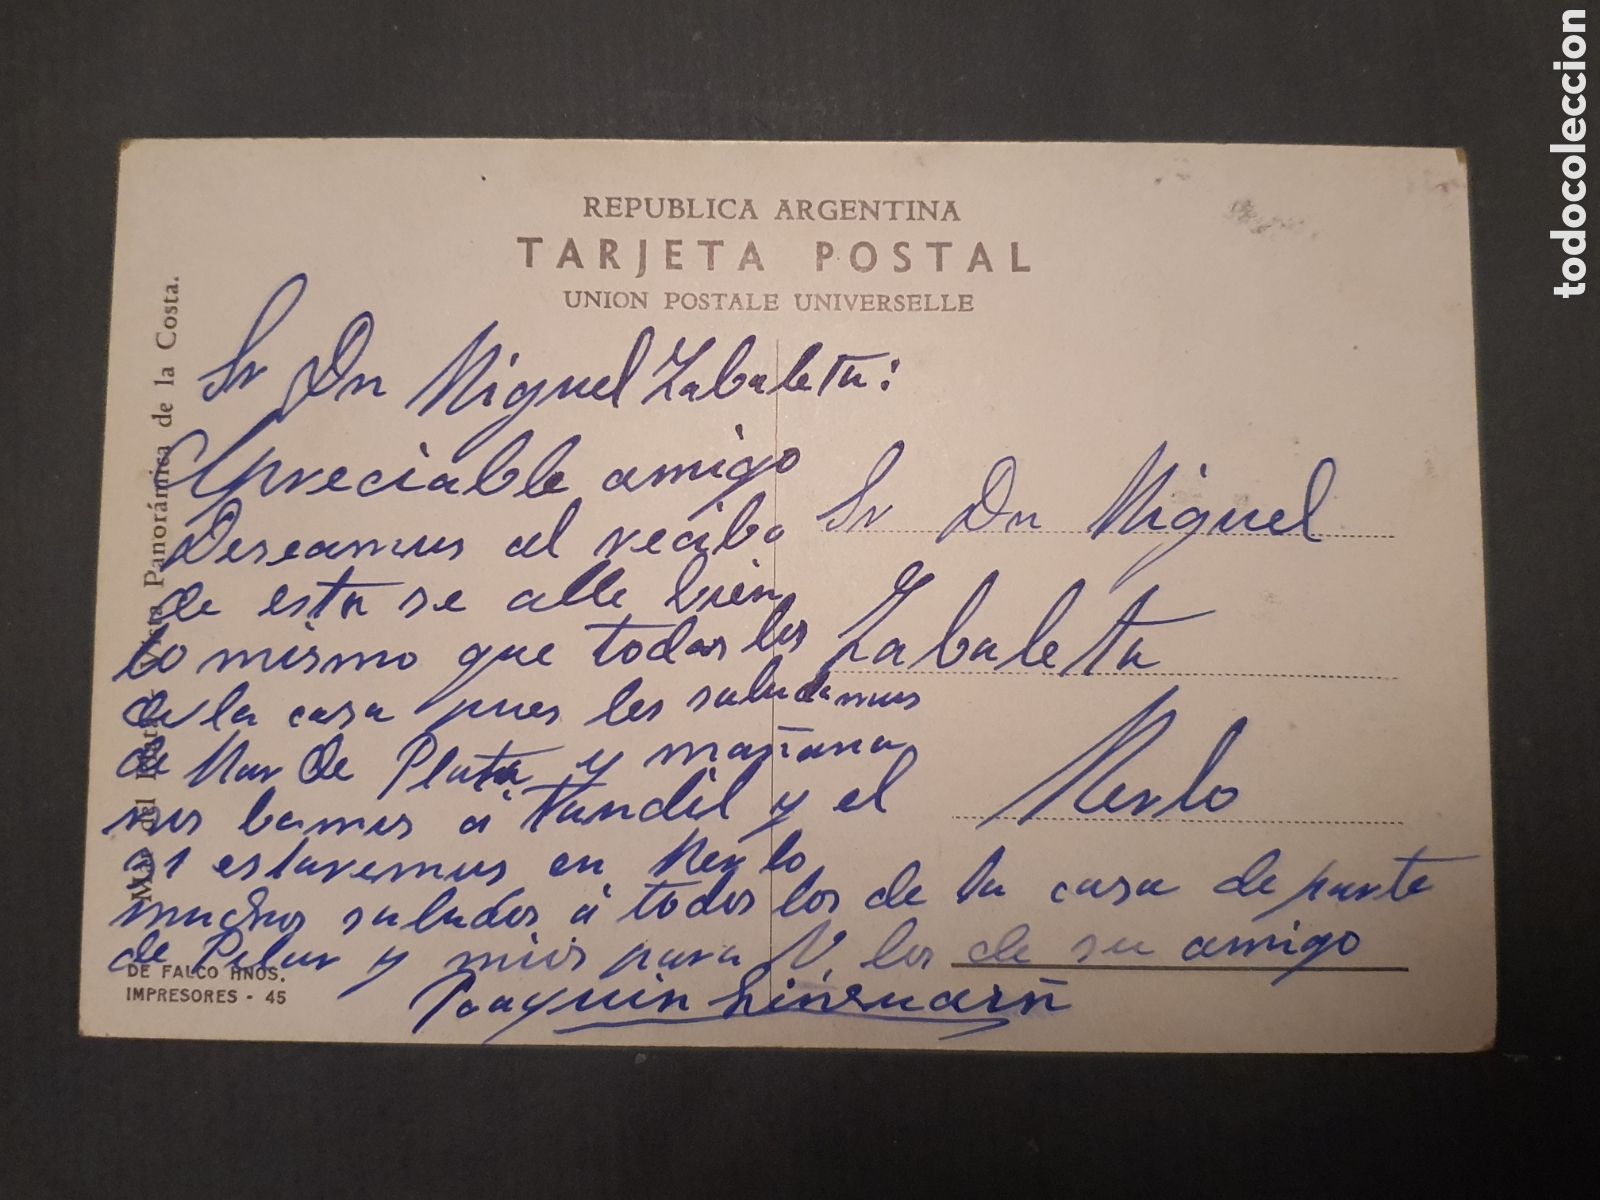 REPUBLICA ARGENTINA
TARJETA POSTAL
UNION POSTALE UNIVERSELLE
Sr Dn Miguel Zabaleta:
Apreciable amigo
Deseamus al recibo
de esta se alle bien
lo mismo que todos los
de la casa pues les saludamus
de Mar de Plata y mañana
nos bamos á Tandil y el
21 estaremus en Merlo
muchos saludos á todos los de la casa de parte
de Pilar y mios para V. los de su amigo
Joaquin
Sr Dn Miguel
Zabaleta
Merlo
Mar del Plata - Vista Panorámica de la Costa.
DE FALCO HNOS.
IMPRESORES - 45
todocoleccion